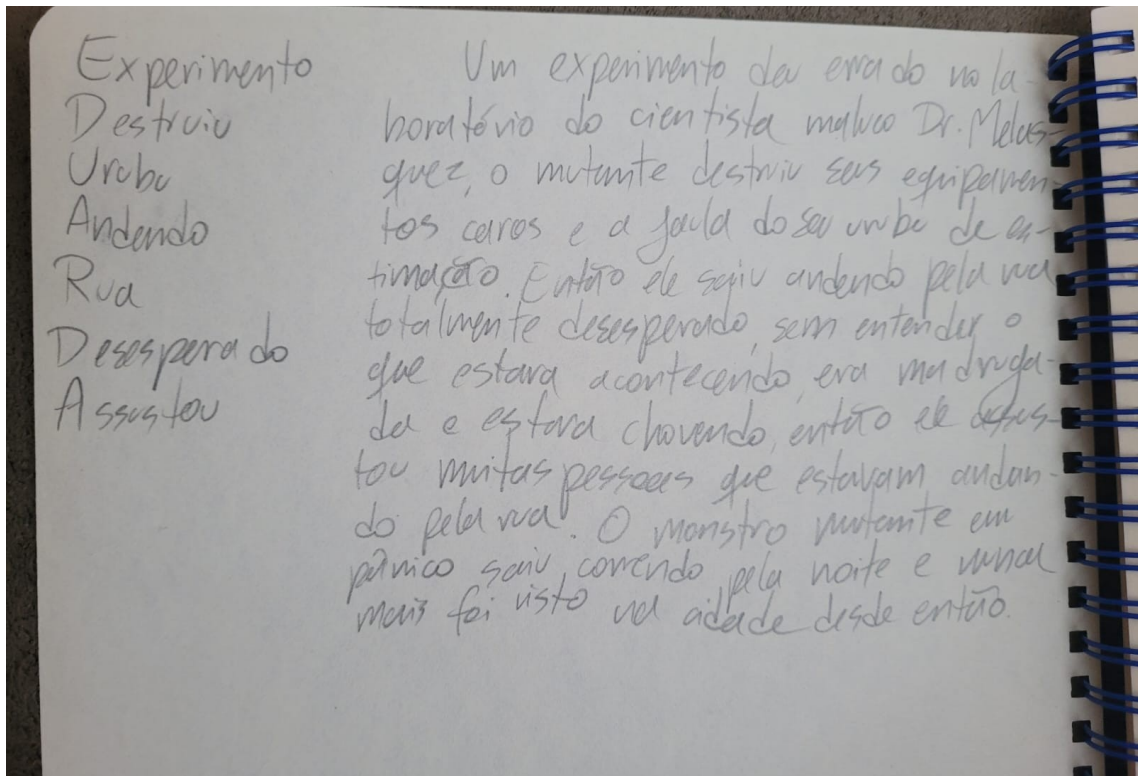 Experimento
Destruiu
Urubu
Andando
Rua
Desesperado
Assustou
Um experimento deu errado no la-
boratório do cientista maluco Dr. Melas-
quez, o mutante destruiu seus equipamen-
tos caros e a jaula do seu urubu de es-
timação. Então ele saiu andando pela rua
totalmente desesperado, sem entender o
que estava acontecendo, era madruga-
da e estava chovendo, então ele assus-
tou muitas pessoas que estavam andan-
do pela rua. O monstro mutante em
pânico saiu correndo pela noite e nunca
mais foi visto na cidade desde então.